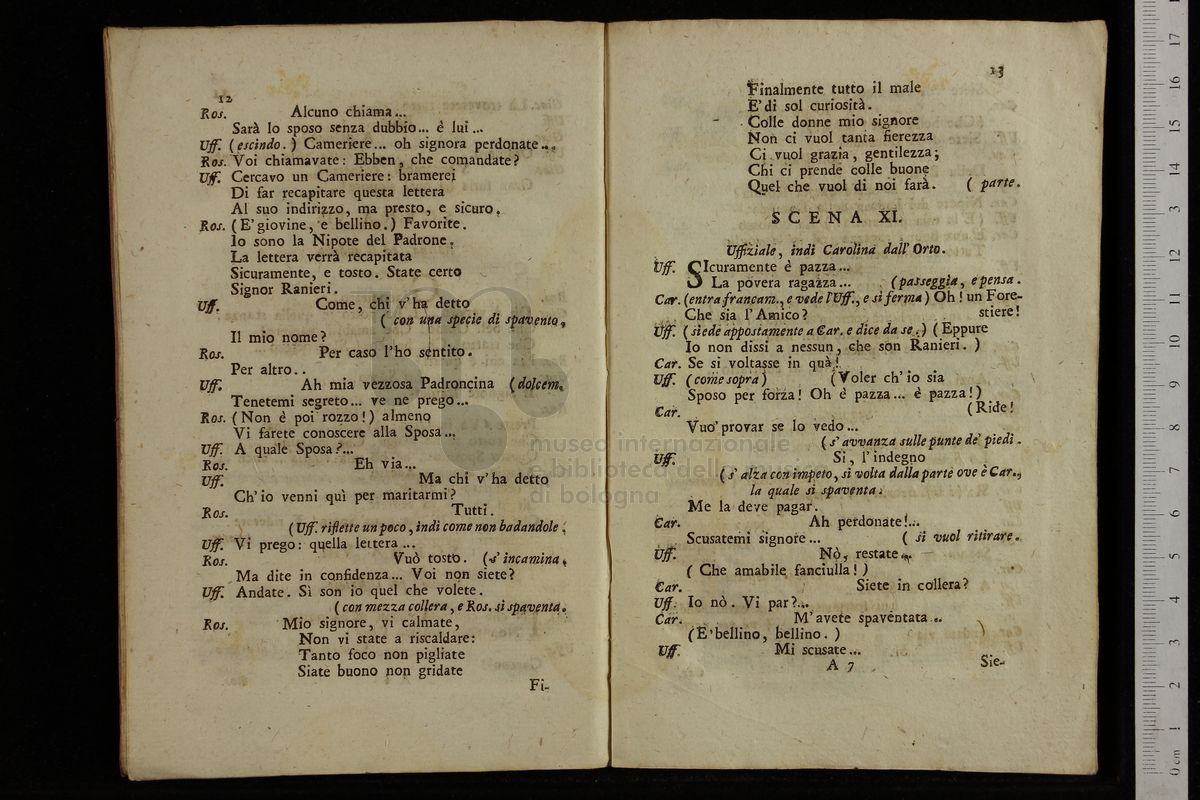 12
Ros. Alcuno chiama...
Sarà lo sposo senza dubbio... è lui...
Uff. (escindo.) Cameriere... oh signora perdonate...
Ros. Voi chiamavate: Ebben, che comandate?
Uff. Cercavo un Cameriere: bramerei
Di far recapitare questa lettera
Al suo indirizzo, ma presto, e sicuro.
Ros. (E' giovine, e bellino.) Favorite.
Io sono la Nipote del Padrone.
La lettera verrà recapitata
Sicuramente, e tosto. State certo
Signor Ranieri.
Uff. Come, chi v'ha detto
( con una specie di spavento,
Il mio nome?
Ros. Per caso l'ho sentito.
Per altro..
Uff. Ah mia vezzosa Padroncina (dolcem.
Tenetemi segreto... ve ne prego...
Ros. (Non è poi rozzo!) almeno
Vi farete conoscere alla Sposa...
Uff. A quale Sposa?...
Ros. Eh via...
Uff. Ma chi v'ha detto
Ch'io venni quì per maritarmi?
Ros. Tutti.
(Uff. riflette un poco, indi come non badandole.
Uff. Vi prego: quella lettera...
Ros. Vuò tosto. (s'incamina.
Ma dite in confidenza... Voi non siete?
Uff. Andate. Sì son io quel che volete.
(con mezza collera, e Ros. si spaventa.
Ros. Mio signore, vi calmate,
Non vi state a riscaldare:
Tanto foco non pigliate
Siate buono non gridate
Fi-
13
Finalmente tutto il male
E' di sol curiosità.
Colle donne mio signore
Non ci vuol tanta fierezza
Ci vuol grazia, gentilezza;
Chi ci prende colle buone
Quel che vuol di noi farà. ( parte.
SCENA XI.
Uffiziale, indi Carolina dall' Orto.
Uff. SIcuramente è pazza...
La povera ragazza... (passeggia, e pensa.
Car. (entra francam., e vede l'Uff., e si ferma) Oh! un Fore-
Che sia l'Amico? stiere!
Uff. (siede appostamente a Car. e dice da se.) (Eppure
Io non dissi a nessun, che son Ranieri. )
Car. Se si voltasse in quà!
Uff. (come sopra) (Voler ch'io sia
Sposo per forza! Oh è pazza... è pazza!)
Car. (Ride!
Vuo' provar se lo vedo...
(s'avvanza sulle punte de' piedi.
Uff. Si, l'indegno
(s'alza con impeto, si volta dalla parte ove è Car.,
la quale si spaventa.
Me la deve pagar.
Car. Ah perdonate!...
Scusatemi signore... ( si vuol ritirare.
Uff. Nò, restate...
( Che amabile fanciulla! )
Car. Siete in collera?
Uff. Io nò. Vi par?...
Car. M'avete spaventata..
(E' bellino, bellino. )
Uff. Mi scusate...
A 7 Sie-
museo internazionale
e biblioteca della musica
di bologna
0 cm 1 2 3 4 5 6 7 8 9 10 11 12 13 14 15 16 17